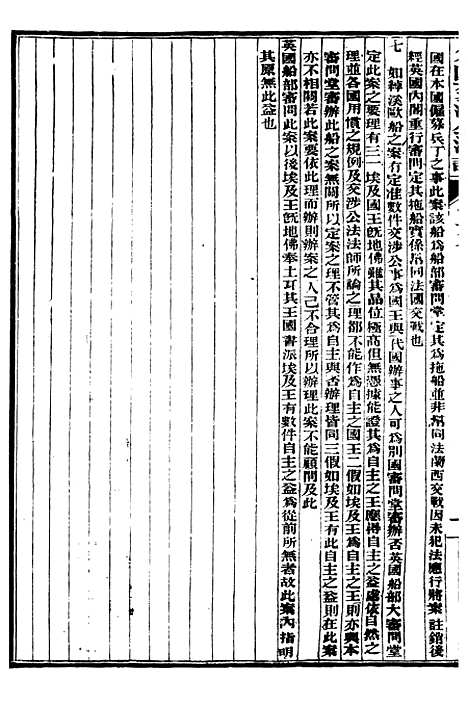 國在本國僱募兵丁之事此案該船爲船部審問堂定其爲拖船並非幫同法蘭西交戰因未犯法應行將案註銷後
經英國內閣重行審問定其拖船實係幫同法國交戰也
七　如綽溪歐船之案有定准數件交涉公事爲國王與代國辦事之人可爲別國審問堂審辦否英國船部大審問堂
定此案之要理有三一埃及國王旣地佛雖其品位極高但無憑據能證其爲自主之王應得自主之益處依自然之
理並各國用慣之規例及交涉公法法師所論之理都不能作爲自主之國王二假如埃及王爲自主之王則亦與本
審問堂審辦此船之案無關所以定案之理不管其爲自主與否辦理皆同三假如埃及王有此自主之益則在此案
亦不相關若此案要依此理而辦則辦案之人己不合理所以辦理此案不能顧問及此
英國船部審問此案以後埃及王旣地佛奉土耳其王國書派埃及王有數件自主之益爲從前所無者故此案內指明
其原無此益也